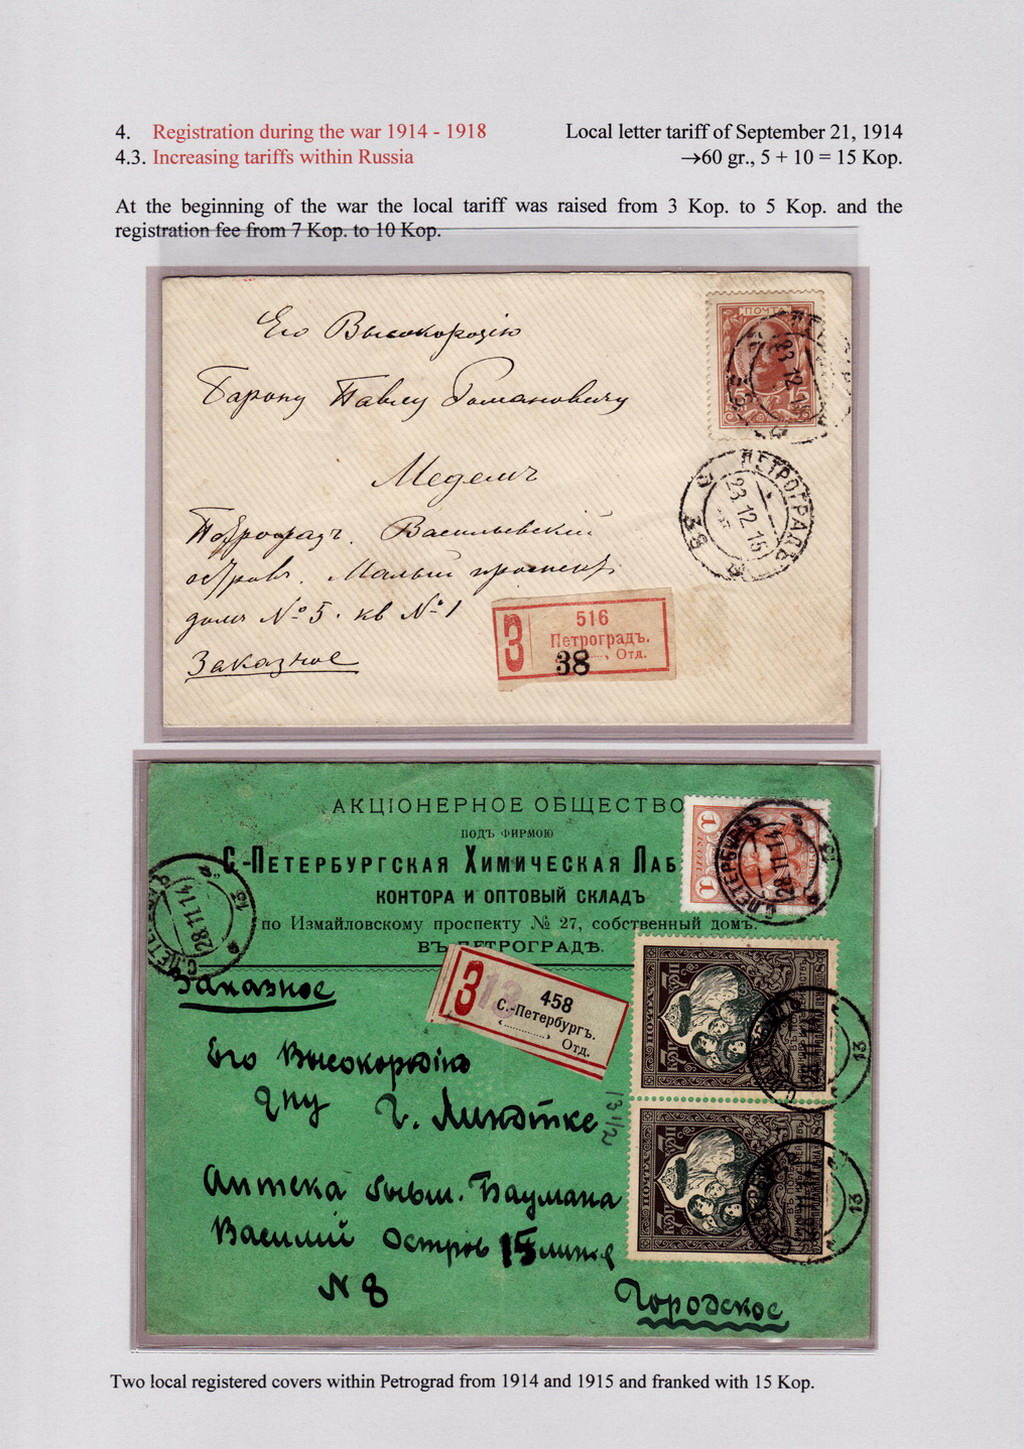 4. Registration during the war 1914 - 1918
Local letter tariff of September 21, 1914
4.3. Increasing tariffs within Russia
→60 gr., 5 + 10 = 15 Kop.
At the beginning of the war the local tariff was raised from 3 Kop. to 5 Kop. and the
registration fee from 7 Kop. to 10 Kop.
Его Высокородію
Барону Павлу Романовичу
Медемъ
Петроградъ. Васильевскій
островъ. Малый проспект
домъ № 5. кв № 1
Заказное
ПОЧТА
15
23.12.15
ПЕТРОГРАДЪ
23.12.15
38
З
516
Петроградъ.
38, Отд.
АКЦІОНЕРНОЕ ОБЩЕСТВО
ПОДЪ ФИРМОЮ
С-ПЕТЕРБУРГСКАЯ ХИМИЧЕСКАЯ ЛАБ
КОНТОРА И ОПТОВЫЙ СКЛАДЪ
по Измайловскому проспекту № 27, собственный домъ.
ВЪ ПЕТРОГРАДѢ.
1
1
С.ПЕТЕРБУРГЪ
28.11.14
13
28.11.14
13
Заказное
З
13
458
С.-Петербургъ.
, Отд.
Его Высокородію
Гну Г. Линдтке
Аптека бывш. Баумана
Василій Остров 15 линія
N 8
Городское
13 1/2
ПОЧТА
7 К
8
28.11.14
13
ПОЧТА
7 К
8
28.11.14
13
Two local registered covers within Petrograd from 1914 and 1915 and franked with 15 Kop.